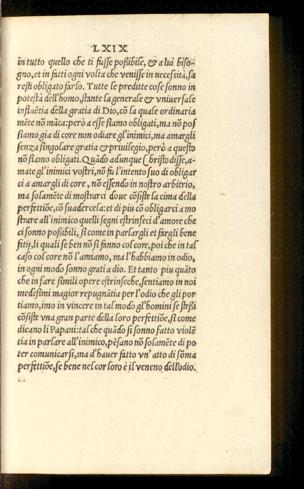 LXIX
in tutto quello che ti fusse poßibile, & a lui biso-
gno, et in fatti ogni volta che venisse in necesità, sa
resti obligato farlo. Tutte le preditte cose sonno in
potestà dell'homo, stante la generale & vniuersale
influẽtia della gratia di Dio, cõ la quale ordinaria
mẽte nõ mãca: però a esse siamo obligati, ma nõ pos
siamo gia di core non odiare gl'inimici, ma amargli
senza singolare gratia & priuilegio, però a questo
nõ siamo obligati. Quãdo adunque Christo disse, a-
mate gl'inimici vostri, nõ fu l'intento suo di obligar
ci a amargli di core, nõ essendo in nostro arbitrio,
ma solamẽte di mostrarci doue cõsiste la cima della
perfettiõe, cõ suadercela: et di più cõ obligarci a mo
strare all'inimico quelli segni estrinseci d'amore che
ci sonno poßibili, sì come in parlargli et fargli bene
fitij, li quali se ben nõ si fanno col core, poi che in tal
caso col core nõ l'amiamo, ma l'habbiamo in odio,
in ogni modo sonno grati a dio. Et tanto piu quãto
che in fare simili opere estrinseche, sentiamo in noi
medesimi magior repugnãtia per l'odio che gli por
tiamo, imo in vincere in tal modo gl'homini se steßi
cõsiste vna gran parte della loro perfettiõe, sì come
dicano li Papani: tal che quãdo si sonno fatto violẽ
tia in parlare all'inimico, pẽsano nõ solamẽte di po-
ter comunicarsi, ma d'hauer fatto vn' atto di sõma
perfettiõe, se bene nel cor loro è il veneno dell'odio.